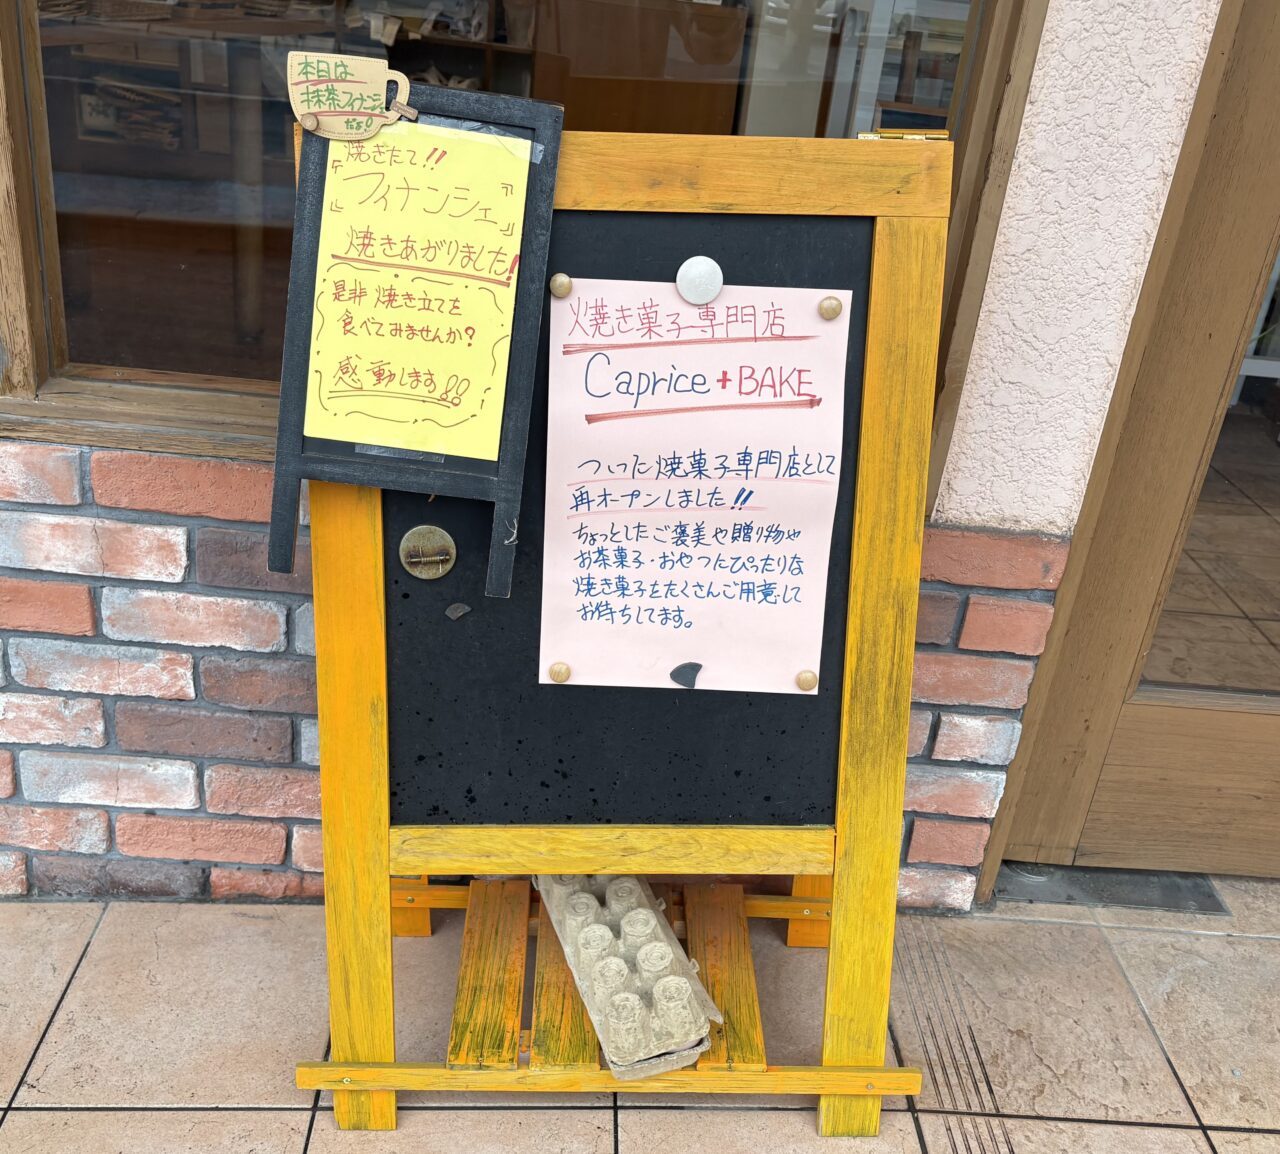 本日は
抹茶フィナンシェ
だよ!
焼きたて!!
『フィナンシェ』
焼きあがりました!
是非 焼き立てを
食べてみませんか?
感動します!!
焼き菓子専門店
Caprice+BAKE
ついた焼菓子専門店として
再オープンしました!!
ちょっとしたご褒美や贈り物や
お茶菓子・おやつにぴったりな
焼き菓子をたくさんご用意して
お待ちしてます。